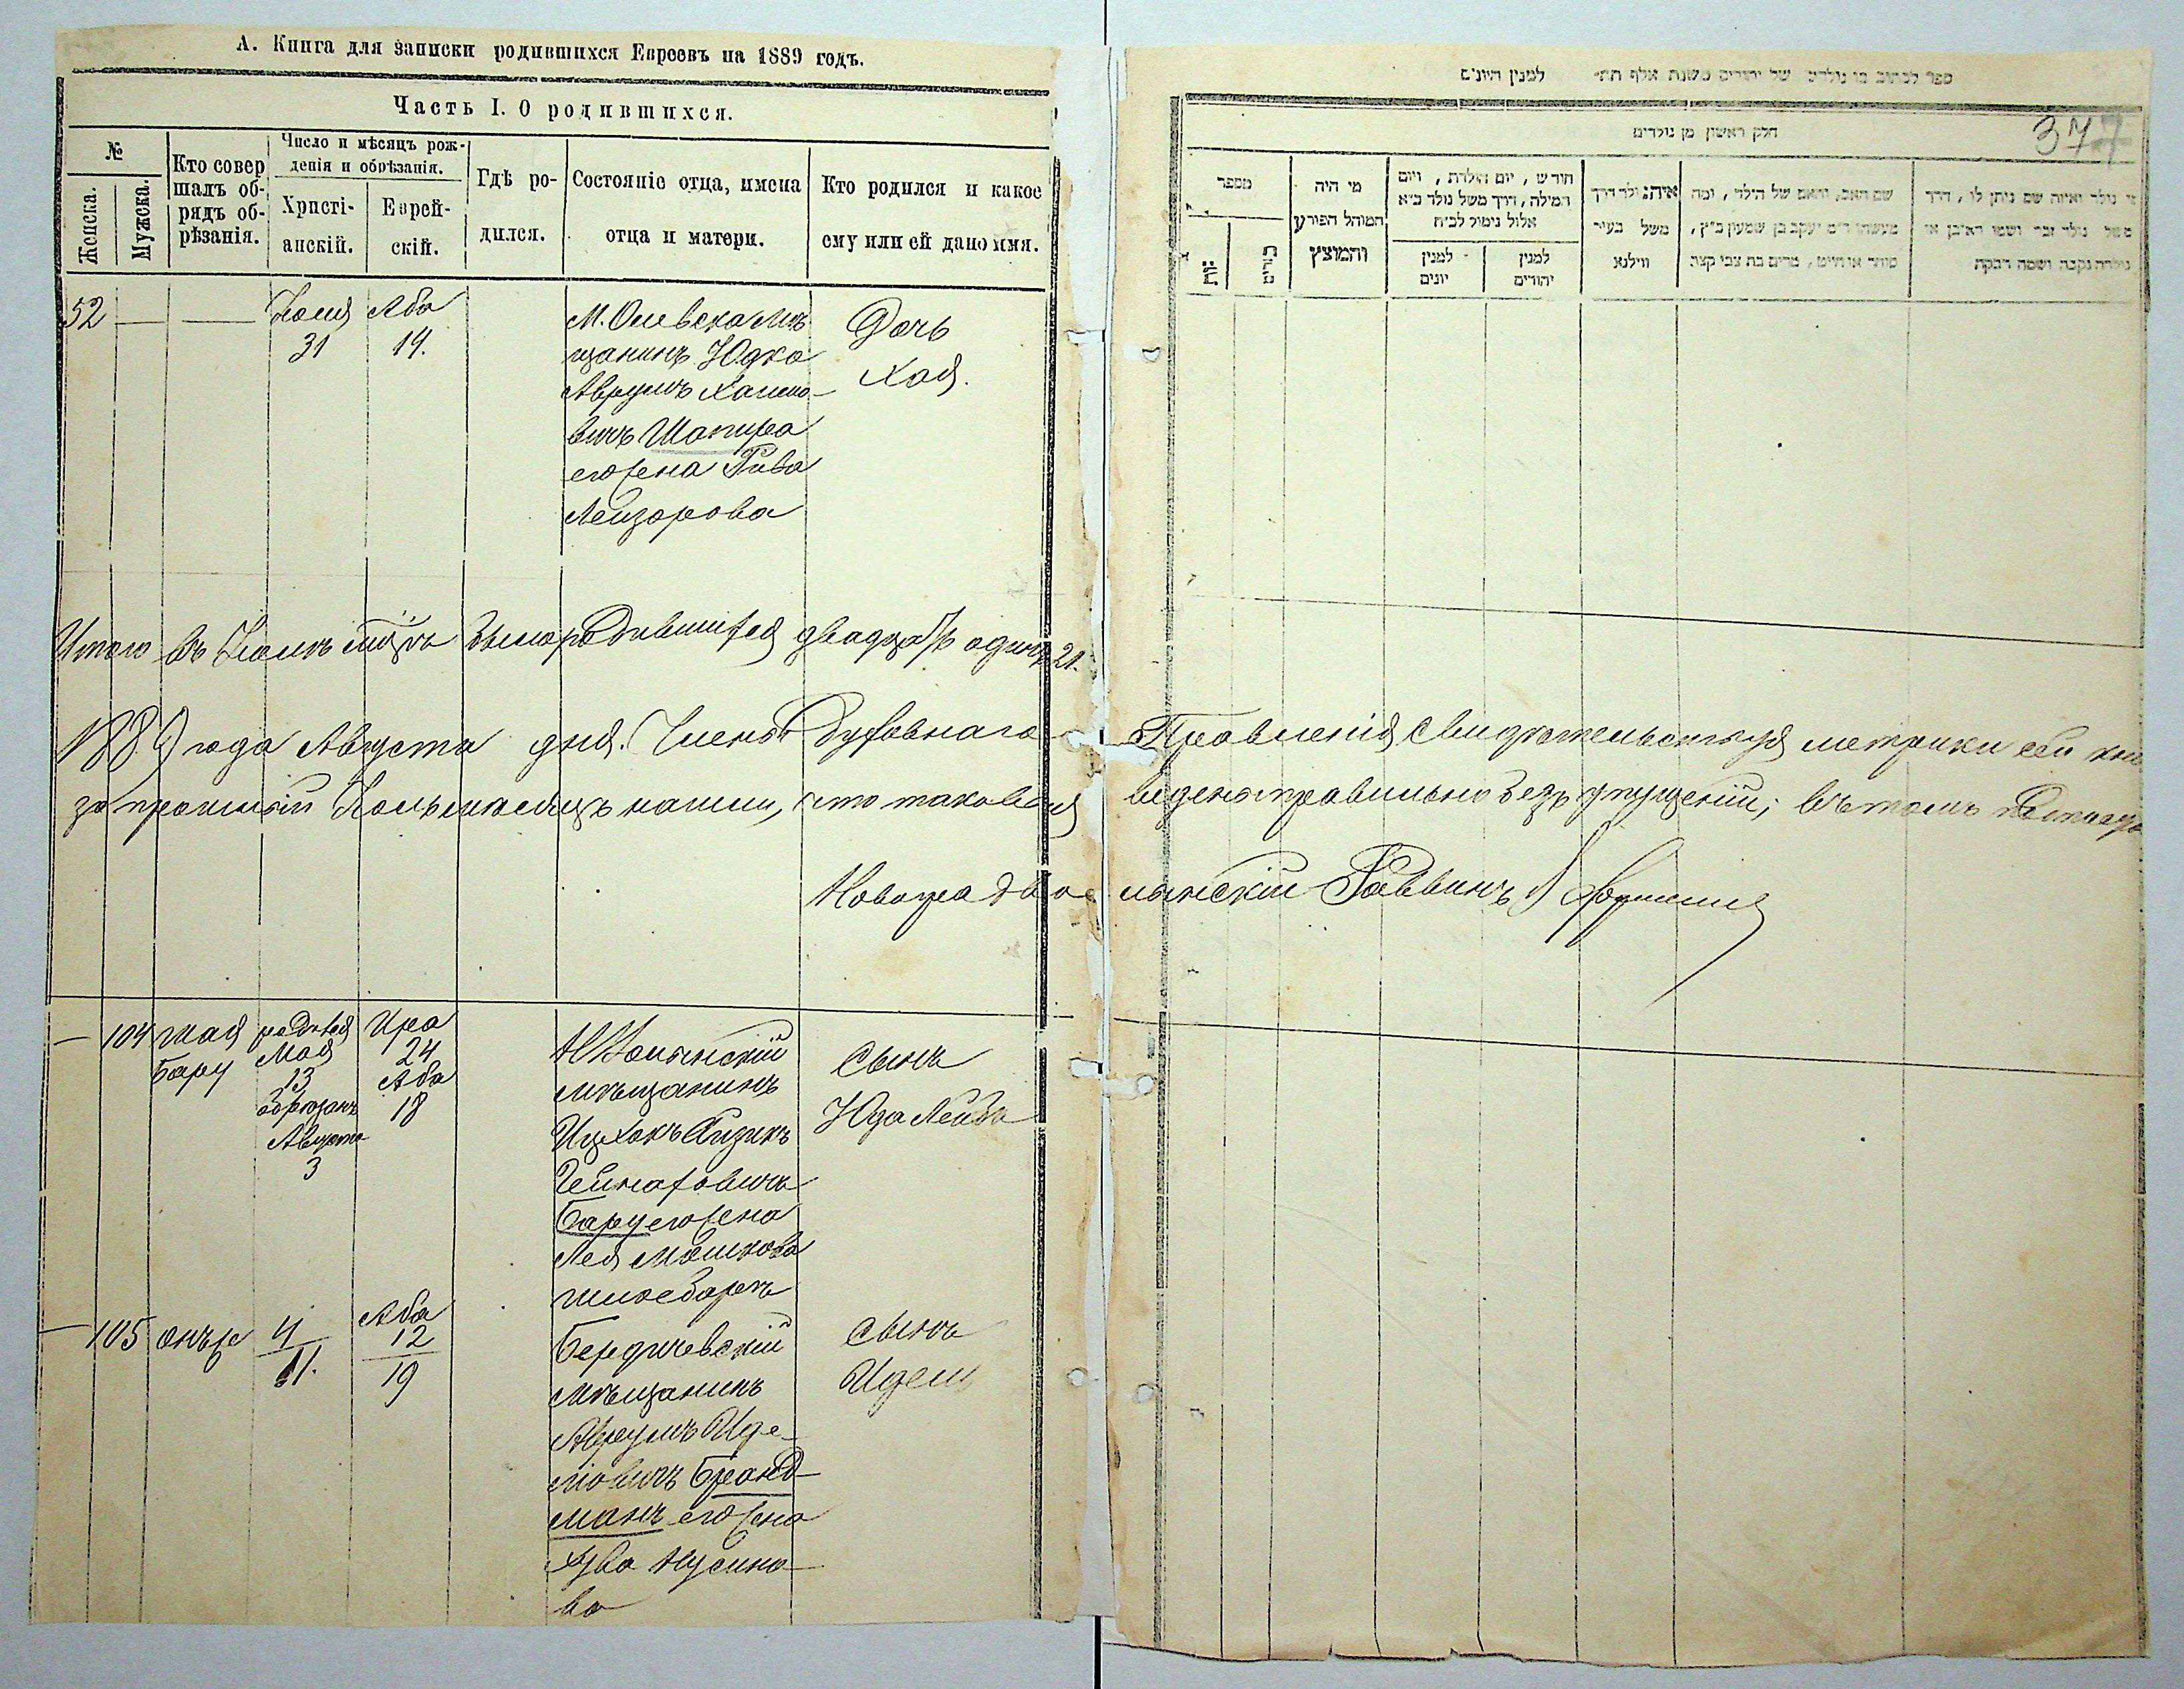 А. Книга для записки родившихся Евреевъ на 1889 годъ.
Часть I. О родившихся.
№
Женска.
Мужска.
Кто совер
шалъ об-
рядъ об-
рѣзанія.
Число и мѣсяцъ рож-
денія и обрѣзанія.
Христі-
анскій.
Еврей-
скій.
Гдѣ ро-
дился.
Состояніе отца, имена
отца и матери.
Кто родился и какое
ему или ей дано имя.
52 — — Июля Аба
31 14.
М. Олевска мѣ
щанинъ Юдко
Аврумъ Хаимо-
вичъ Шапира
его жена Рива
Лейзорова
Дочь
Хая.
Итого въ Июлѣ мцѣ было родившихся двадцать одинъ 21.
1889 года Августа дня. Члены Духовнаго Правленія свидѣтельствуя метрики сей
за прошлый Июль мѣсяцъ нашли, что таковая ведена правильно безъ упущеній; въ томъ
Новоградволынскій Раввинъ
— 104
родился
Мая
13
обрѣзанъ
Августа
3
Ира
24
Аба
18
Бару
НВолынскій
мѣщанинъ
Ицхокъ Айзикъ
Бару его жена
Лея Мошкова
Сынъ
Юда Лейбъ
— 105 онъ же 4
11.
Аба
12
19
Бердичевскій
мѣщанинъ
Аврумъ Иде-
ліовичъ Бранд-
манъ его жена
Хува Нусино-
ва
сынъ
Идель
ספר לכתוב בו נולדים של יהודים משנת אלף תת״ למנין היונים
חלק ראשון מן נולדים
377
מספר
מי היה
המוהל הפורע
והמוצץ
חודש, יום הולדת, ויום
המילה, דרך משל נולד כ״א
אלול נימול לכ״ח
למנין
יונים
למנין
יהודים
משל בעיר
ווילנא
שם האב, והאם של הילד, ומה
מעשהו ר״מ יעקב בן שמעון כ״ץ,
סוחר או חייט, מרים בת צבי קצב
מי נולד ואיזה שם ניתן לו, דרך
משל נולד זכר ושמו ראובן או
נולדה נקבה ושמה רבקה